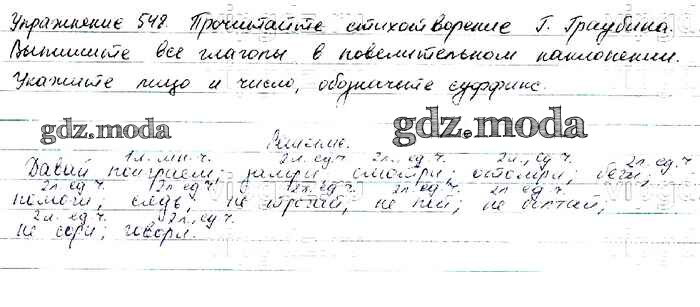 Упражнение 548. Прочитайте стихотворение Г. Граубина.
Выпишите все глаголы в повелительном наклонении.
Укажите лицо и число, обозначьте суффикс.
gdz.moda gdz.moda
Решение.
1л. мн. ч. 2л. ед. ч. 2л. ед. ч. 2л. ед. ч. 2л. ед. ч.
Давай поиграем; замри; смотри; отомри; беги;
2л. ед. ч. 2л. ед. ч. 2л. ед. ч. 2л. ед. ч. 2л. ед. ч.
помоги, сядь, не трогай, не пей; не болтай;
2л. ед. ч. 2л. ед. ч.
не сори; говори.